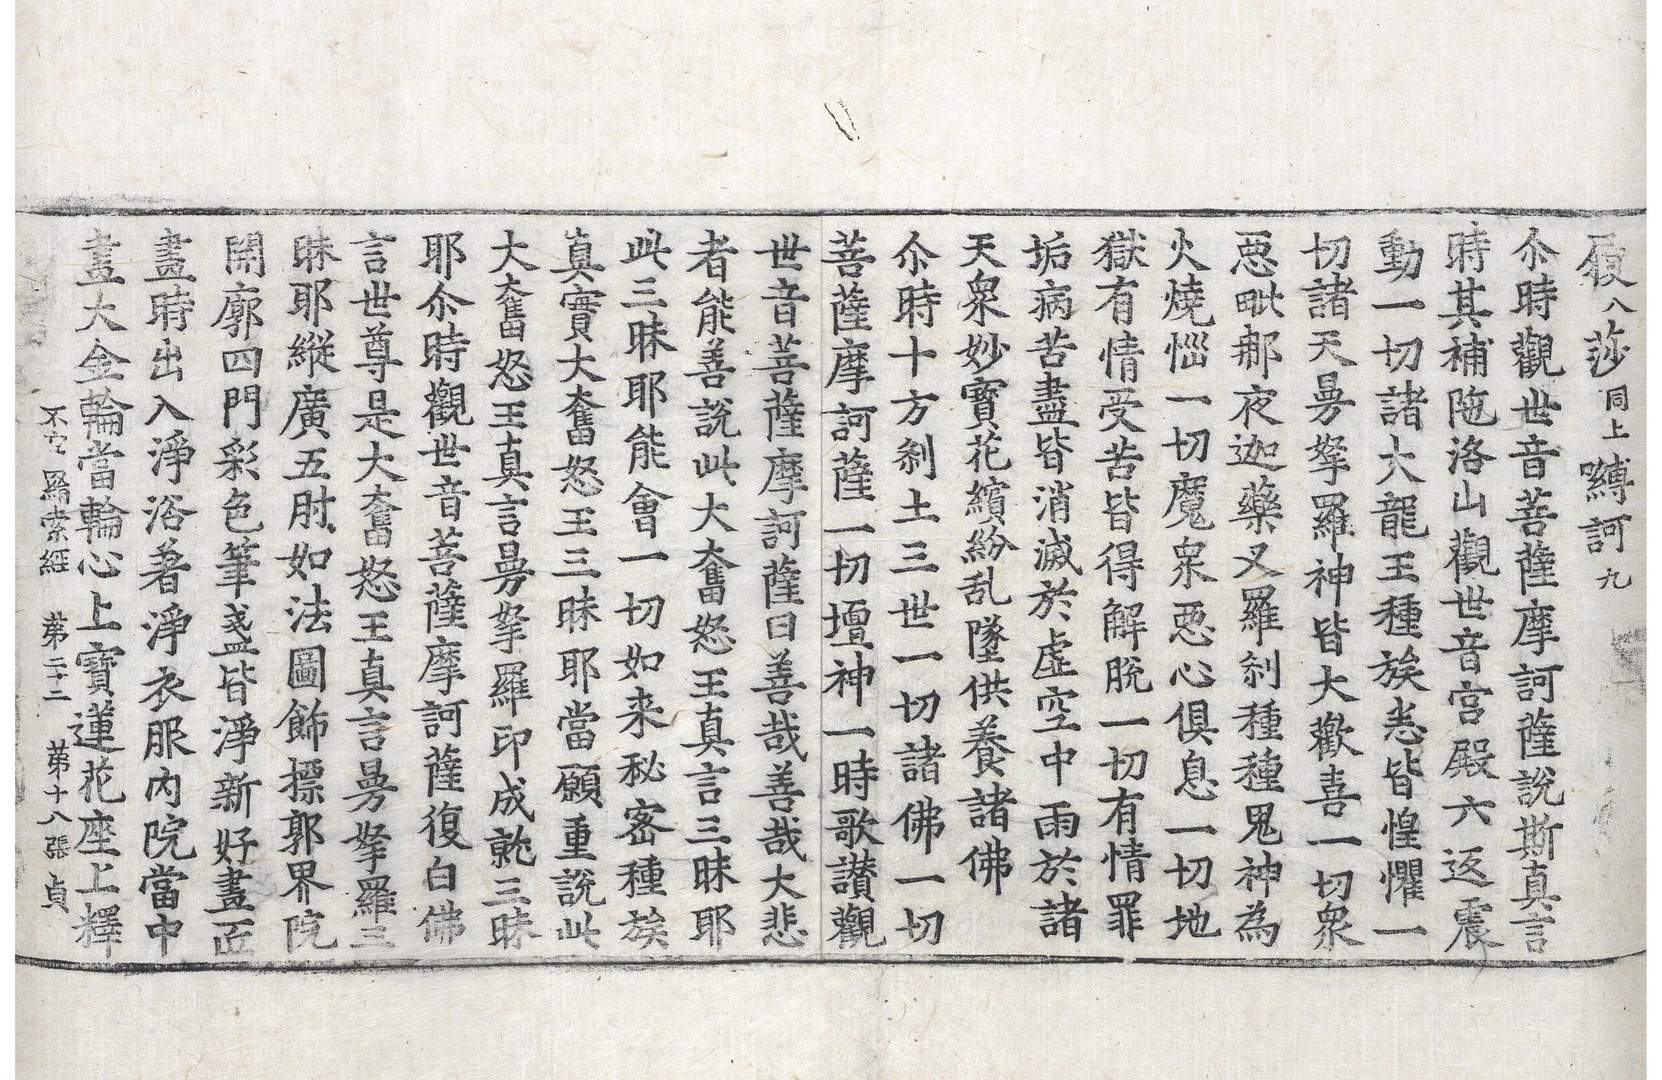 㢑八莎同上嚩訶九
尒時觀世音菩薩摩訶薩說斯真言
時其補陁洛山觀世音宫殿六返震
動一切諸大龍王種族恙皆惶懼一
切諸天曼拏羅神皆大歡喜一切衆
惡毗那夜迦藥叉羅刹種種鬼神為
火燒惱一切魔衆惡心俱息一切地
獄有情受苦皆得解脫一切有情罪
垢病苦盡皆消滅於虛空中雨於諸
天衆妙寶花繽紛乱墜供養諸佛
尒時十方刹土三世一切諸佛一切
菩薩摩訶薩一切壇神一時歌讃觀
世音菩薩摩訶薩曰善哉善哉大悲
者能善說此大奮怒王真言三昧耶
此三昧耶能會一切如来秘密種族
真實大奮怒王三昧耶當願重說此
大奮怒王真言曼拏羅印成就三昧
耶尒時觀世音菩薩摩訶薩復白佛
言世尊是大奮怒王真言曼拏羅三
昧耶縱廣五肘如法圖飾摽郭界院
開廓四門彩色筆盞皆淨新好畫匠
畫時出入淨浴著淨衣服內院當中
畫大金輪當輪心上寶蓮花座上釋
不空羂索經 第二十二 第十八張 貞